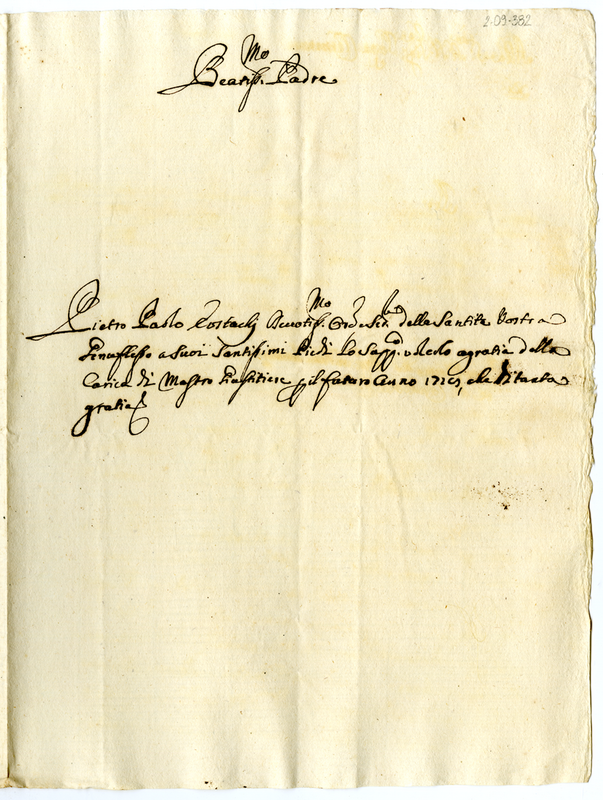 2-09-382
Beatiss.mo Padre
Pietro Paolo Costachi Devotiss.mo Or.e e Ser.re della Santità Vostra
Genuflesso a suoi Santissimi Piedi Lo Supp.ca volerlo agratià della
Carica di Mastro Giustitiere p il futuro Anno che di tanta
gratia